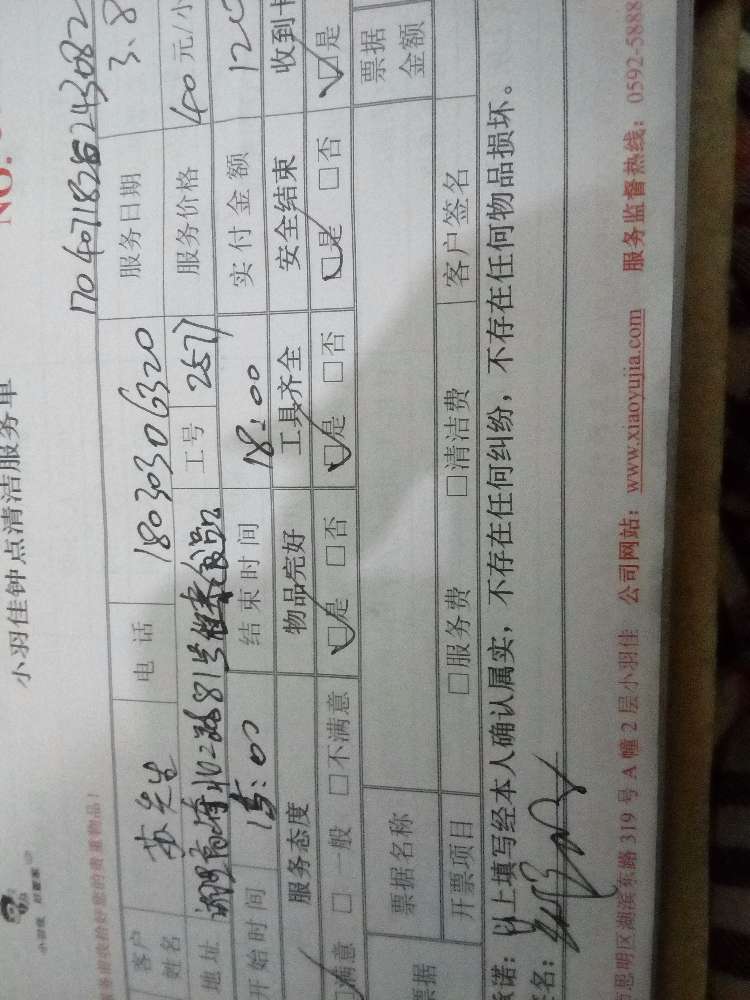 小羽佳钟点清洁服务单
NO.
小羽佳 好管家
务前收拾好您的贵重物品！
客户姓名 苏先生 电话 18030306320 服务日期 3.8
地址 81号 工号 2571 服务价格 40元/小
开始时间 15:00 结束时间 18:00 实付金额 120
服务态度 物品完好 工具齐全 安全结束 收到卡
满意 □一般 □不满意 □是 □否 □是 □否 □是 □否 □是
票据名称 票据金额
票据 开票项目 □服务费 □清洁费 客户签名
承诺：以上填写经本人确认属实，不存在任何纠纷，不存在任何物品损坏。
签名：
思明区湖滨东路319号A幢2层小羽佳 公司网站：www.xiaoyujia.com 服务监督热线：0592-5888